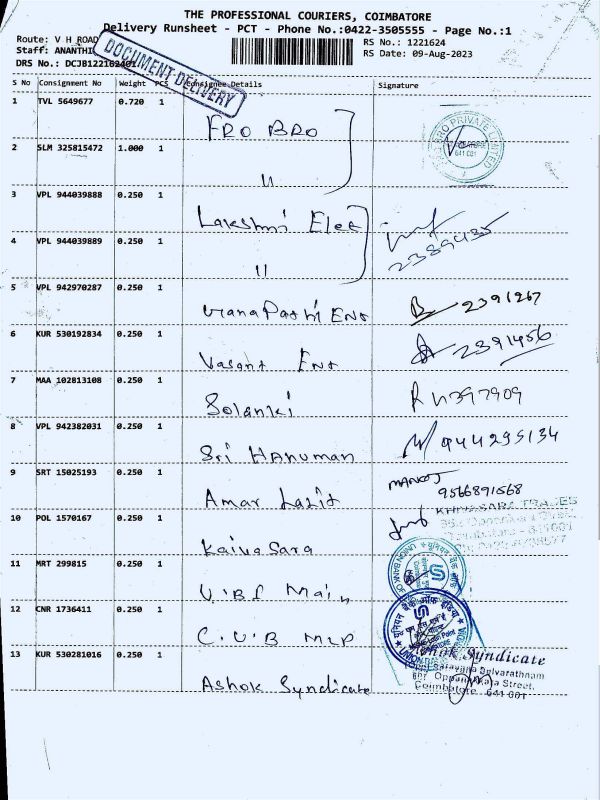 THE PROFESSIONAL COURIERS, COIMBATORE
Delivery Runsheet - PCT - Phone No.:0422-3505555 - Page No.:1
Route: V H ROAD RS No.: 1221624
Staff: ANANTHI RS Date: 09-Aug-2023
DRS No.: DCJB122162401
DOCUMENT DELIVERY
S No Consignment No Weight PCS Consignee Details Signature
1 TVL 5649677 0.720 1 FRO BRO
BRO PRIVATE LIMITED
641 001
2 SLM 325815472 1.000 1 "
3 VPL 944039888 0.250 1 Lakshmi Elec
2389435
4 VPL 944039889 0.250 1 "
5 VPL 942970287 0.250 1 GanaPathi Ent 2391267
6 KUR 530192834 0.250 1 Vasant Ent 2391456
7 MAA 102813108 0.250 1 Solanki
8 VPL 942382031 0.250 1 Sri Hanuman 944295134
9 SRT 15025193 0.250 1 Amar Lalit MANOJ
9566891568
10 POL 1570167 0.250 1 Kaivasara
KHIVASARA TRADES
11 MRT 299815 0.250 1 U.B.I Main
UNION BANK
12 CNR 1736411 0.250 1 C.U.B MLP
यूनियन बैंक ऑफ इंडिया
13 KUR 530281016 0.250 1 Ashok Syndicate
Ashok Syndicate
Selvarathnam
Street,
Coimbatore - 641 001